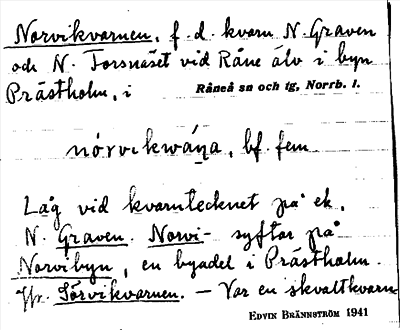 Norvikvarnen, f. d. kvarn N. Graven
och N. Forsnäset vid Råne älv i byn
Prästholm, i Råneå sn och tg, Norrb. l.
nórvikwána, bf. fem
Låg vid kvarntecknet på ek.
N. Graven. Norvi- syftar på
Norvibyn, en byadel i Prästholm.
Jfr. Sörvikvarnen. – Var en skvaltkvarn
EDVIN BRÄNNSTRÖM 1941